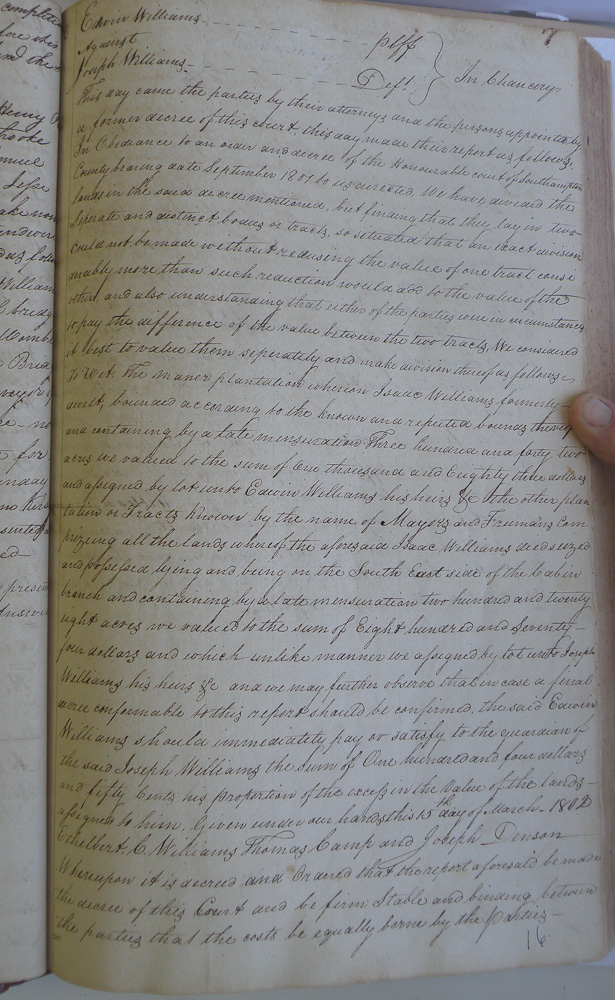 7
Edwin Williams
plff
Against
Joseph Williams
Deft.
In Chancery
This day came the parties by their attorneys and the persons appointed by
a former decree of this court this day made their report as follows.
In Obedeance to an order and decree of the Honourable court of Southampton
County bearing date September 1801 to us directed, We have divided the
lands in the said decree mentioned, but finding that they lay in two
Seperate and distinct bodies or tracts, so situated that an exact division
could not be made without redusing the value of one tract consi
derably more than such reduction would add to the value of the
other, and also understanding that either of the parties were in circumstances
to pay the difference of the value between the two tracts, We considered
it best to value them seperately and make division thereof as follows,
To Wit. The manor plantation whereon Isaac Williams formerly
dwelt, bounded according to the known and reputed bounds thereof
and containing by a late mensuration Three hundred and forty two
acres we valued to the sum of One thousand and Eughty three dollars
and assigned by lot unto Edwin Williams his heirs &c the other plan
tation or Tracts known by the name of Mayers and Freemans Com
prizeing all the lands whereof the aforesaid Isaac Williams died seized
and possessed lying and being on the South East side of the Cabin
branch and containing by a late mensuration two hundred and twenty
eight acres we valued to the sum of Eight hundred and Seventy
four dollars and which unlike manner we assigned by lot unto Joseph
Williams his heirs &c and we may further observe that in case a final
decree conformable to this report should be confirmed, the said Edwin
Williams should immediately pay or satisfy to the guardian of
the said Joseph Williams the sum of One hundred and four dollars
and fifty Cents his proportion of the excess in the Value of the lands
assigned to him, Given under our hands this 15th day of March 1802
Ethelbert C Williams Thomas Camp and Joseph Denson
Whereupon it is decreed and Ordered that the report aforesaid be made
the decree of this Court and be firm Stable and binding between
the parties that the costs be equally borne by the parties
16